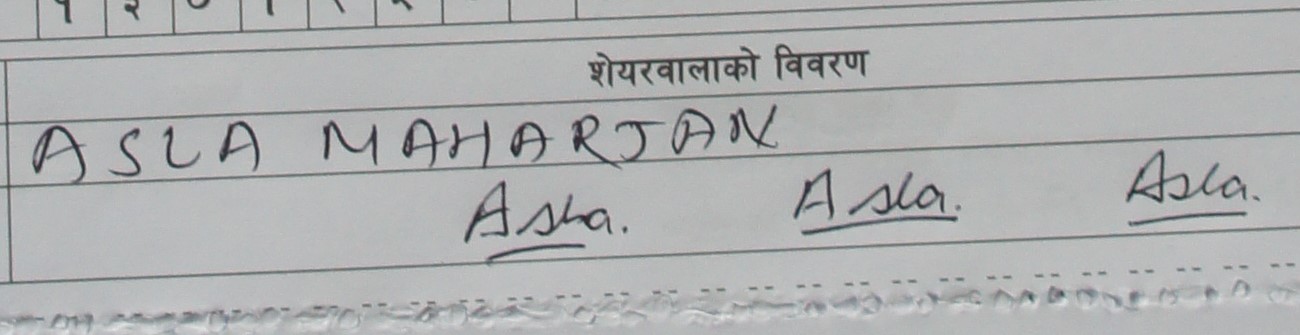 शेयरवालाको विवरण
ASLA MAHARJAN
Asla. Asla. Asla.